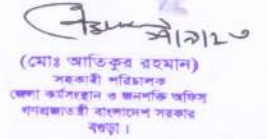 (মোঃ আতিকুর রহমান)
সহকারী পরিচালক
জেলা কর্মসংস্থান ও জনশক্তি অফিস
গণপ্রজাতন্ত্রী বাংলাদেশ সরকার
বগুড়া।